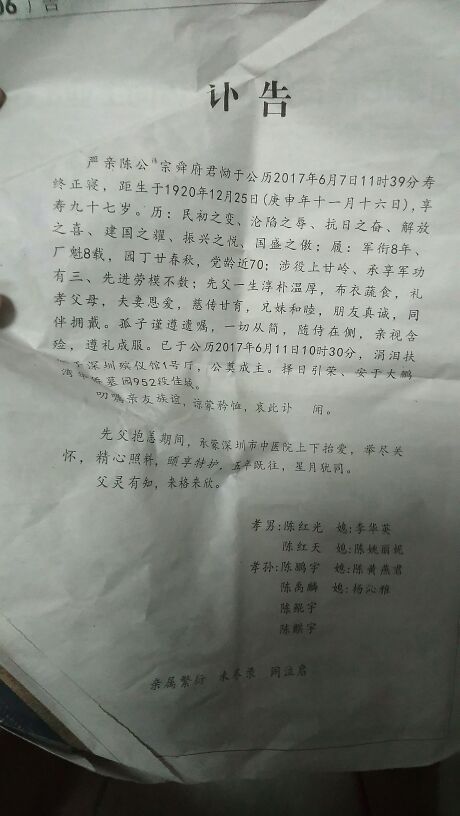 06 广告
讣告
严亲陈公讳宗舜府君恸于公历2017年6月7日11时39分寿
终正寝，距生于1920年12月25日(庚申年十一月十六日),享
寿九十七岁。历：民初之变、沦陷之辱、抗日之奋、解放
之喜、建国之耀、振兴之悦、国盛之傲；履：军衔8年、
厂魁8载，园丁廿春秋，党龄近70；涉役上甘岭、承享军功
有三、先进劳模不数；先父一生淳朴温厚，布衣蔬食，礼
孝父母，夫妻恩爱，慈传甘育，兄妹和睦，朋友真诚，同
伴拥戴。孤子谨遵遗嘱，一切从简，随侍在侧，亲视含
殓，遵礼成服。已于公历2017年6月11日10时30分，涓泪扶
于深圳殡仪馆1号厅，公奠成主。择日引荣、安于大鹏
湾华侨墓园952段佳城。
叨嘱亲友族谊，谅蒙矜恤，哀此讣 闻。
先父抱恙期间，永蒙深圳市中医院上下抬爱，举尽关
怀，精心照料，颐享特护，五年既往，星月犹同。
父灵有知，来格来欣。
孝男:陈红光 媳:李华英
陈红天 媳:陈姚丽妮
孝孙:陈鹏宇 媳:陈黄燕君
陈禹麟 媳:杨沁雅
陈鲲宇
陈麒宇
亲属繁衍 未尽录 闻泣启